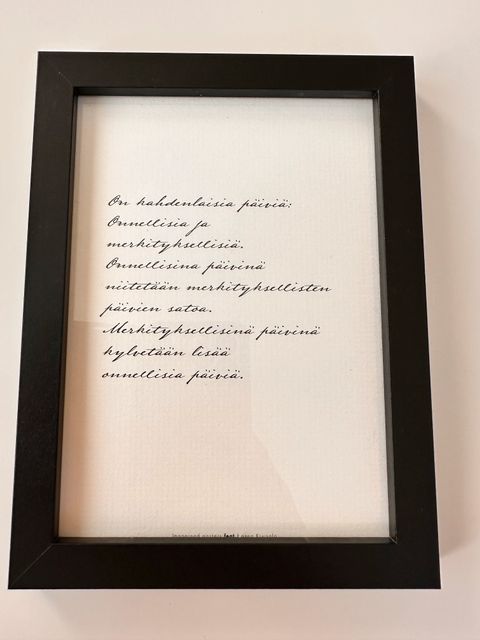 On kahdenlaisia päiviä:
Onnellisia ja
merkityksellisiä.
Onnellisina päivinä
niitetään merkityksellisten
päivien satoa.
Merkityksellisinä päivinä
kylvetään lisää
onnellisia päiviä.
feat